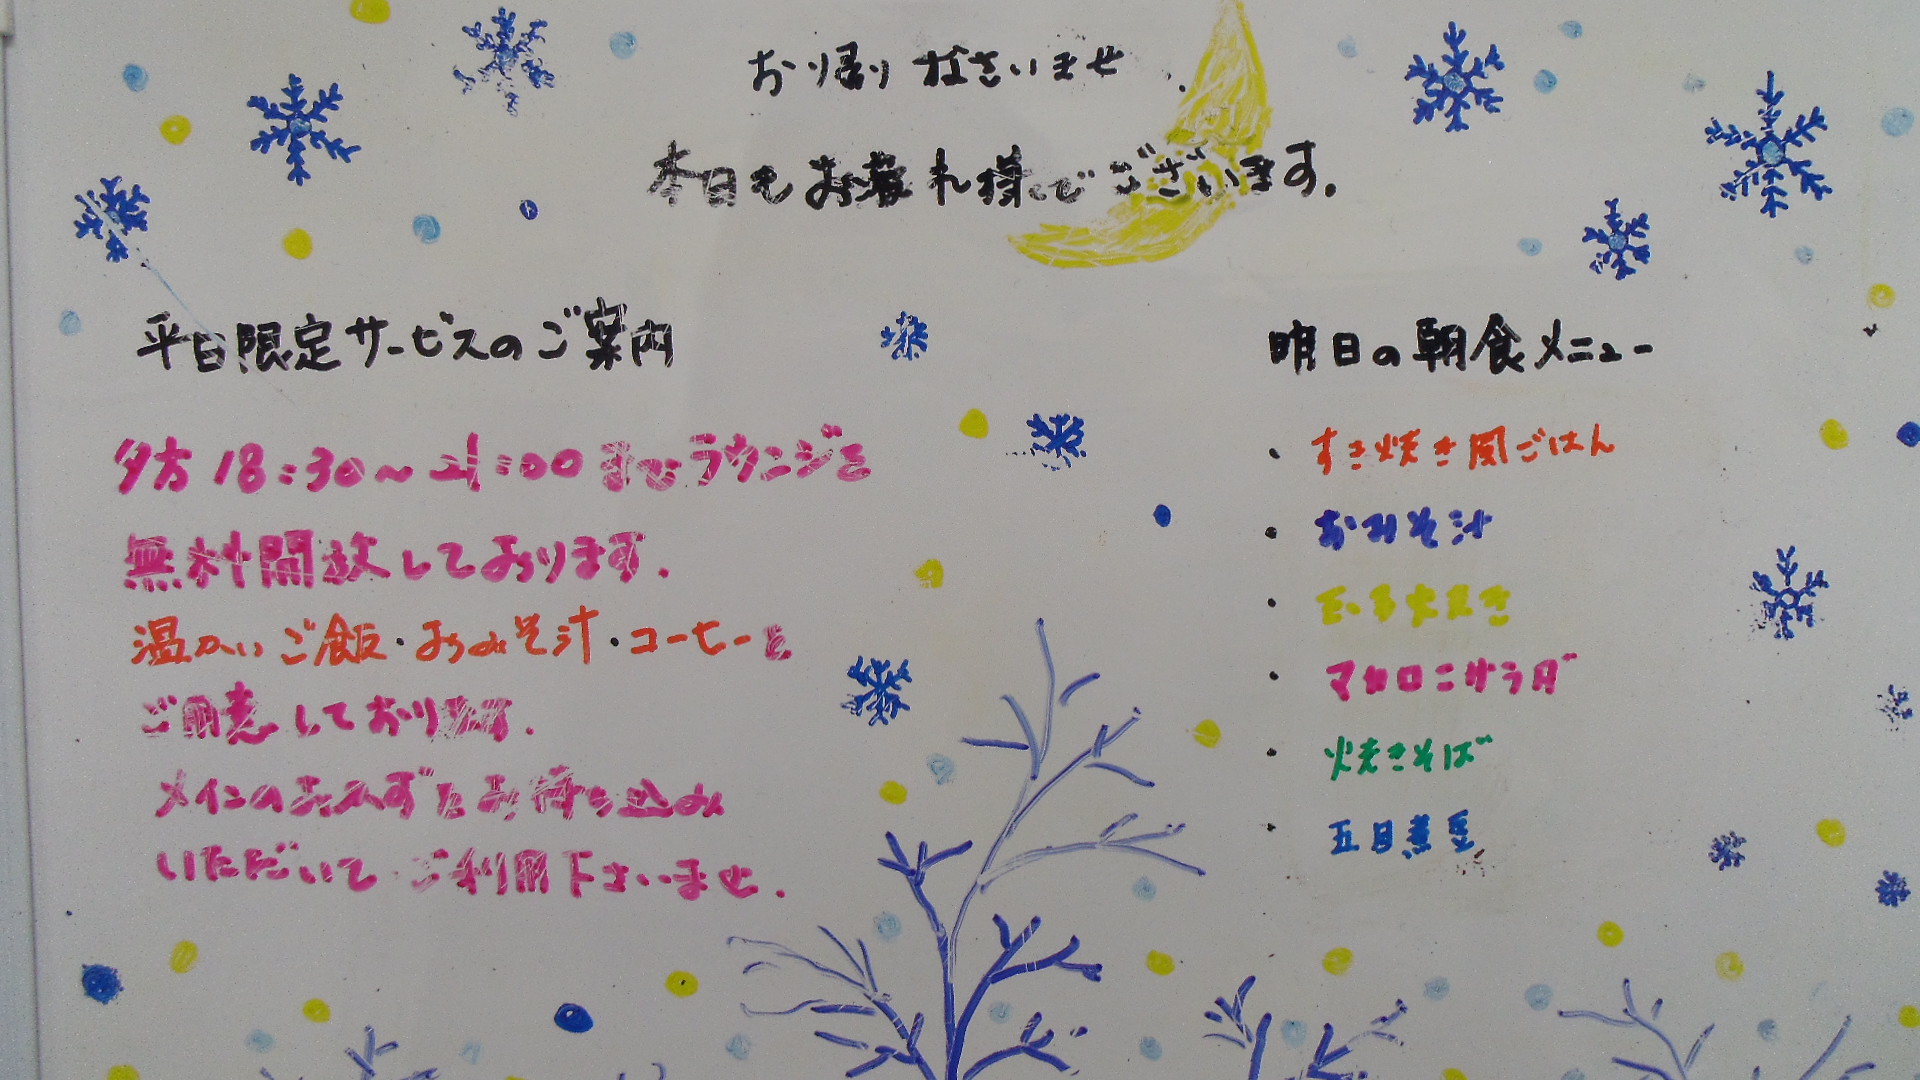 お帰りなさいませ.
本日もお疲れ様でございます.
平日限定サービスのご案内
夕方18:30〜21:00までラウンジを
無料開放しております.
温かいご飯・おみそ汁・コーヒーを
ご用意しております.
メインのおかずをお持ち込み
いただいてご利用下さいませ.
明日の朝食メニュー
・すき焼き風ごはん
・おみそ汁
・玉子焼き
・マカロニサラダ
・焼きそば
・五目煮豆